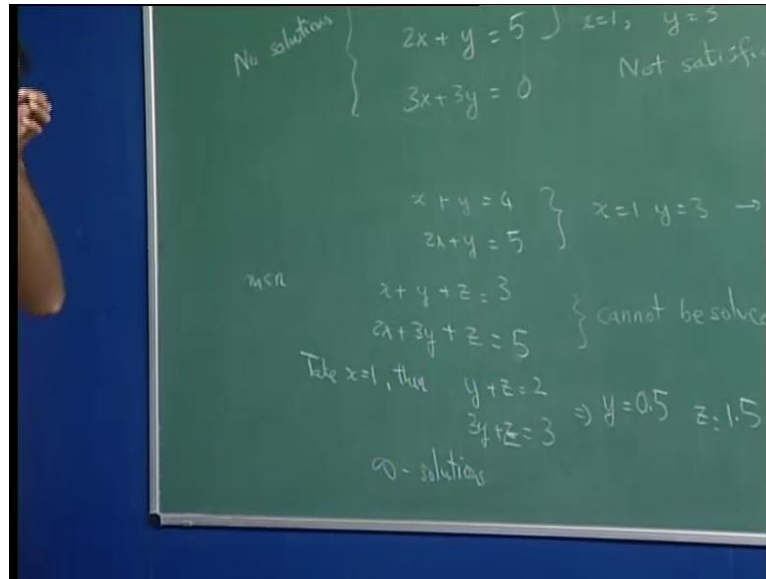 No solutions
2x + y = 5 } x=1, y=3
3x+3y = 0
Not satisfi
x + y = 4
2x+y = 5 } x=1 y=3 →
m<n
x + y + z = 3
2x+3y + z = 5 } cannot be solve
Take x=1, then y+z=2
3y+z=3 ⇒ y=0.5 z=1.5
∞- solutions